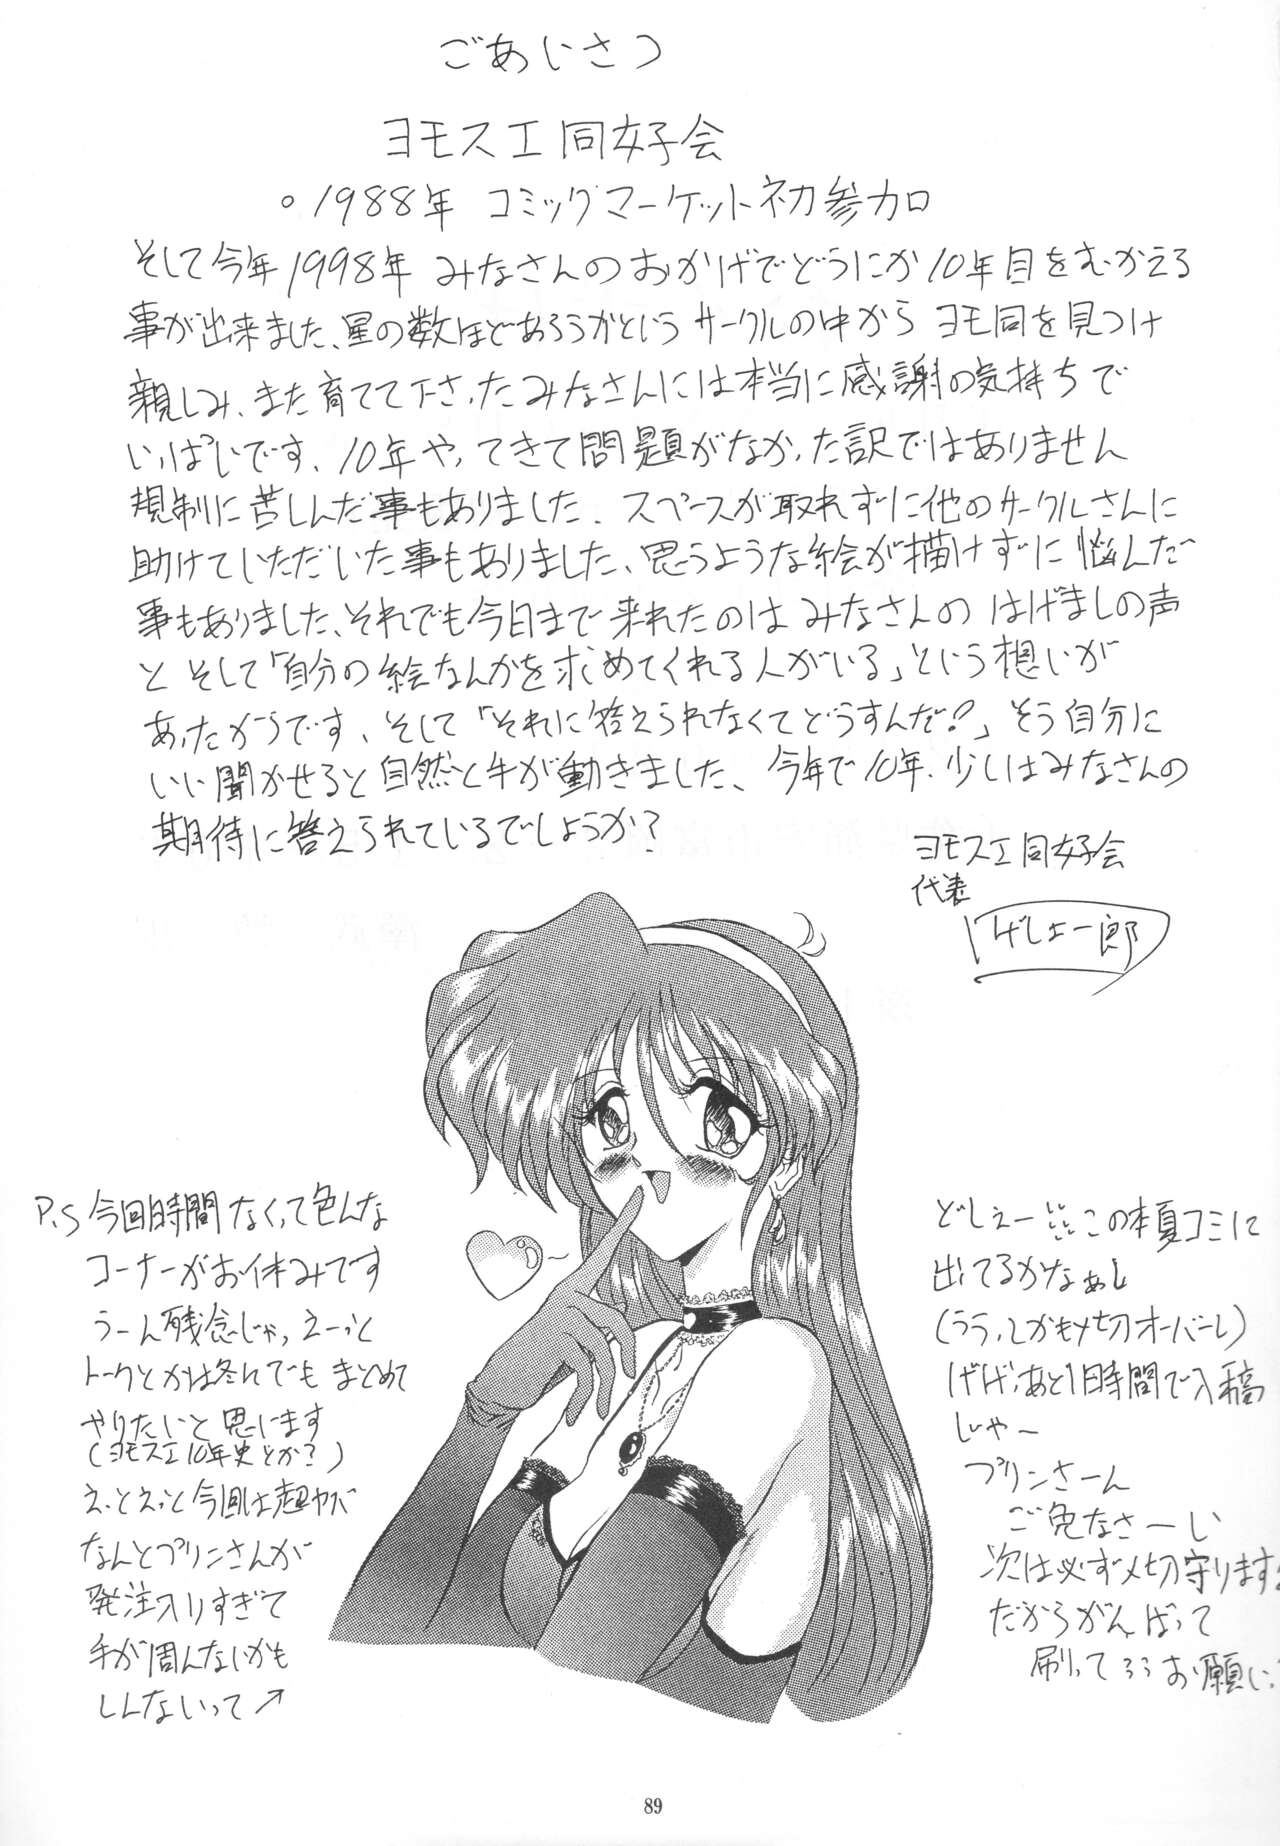 ごあいさつ
ヨモスエ同好会
。1988年 コミックマーケット初参加
そして今年1998年 みなさんのおかげでどうにか10年目をむかえる
事が出来ました、星の数ほどあろうかというサークルの中から ヨモ同を見つけ
親しみ、また育てて下さったみなさんには本当に感謝の気持ちで
いっぱいです、10年やってきて問題がなかった訳ではありません
規制に苦しんだ事もありました、スペースが取れずに他のサークルさんに
助けていただいた事もありました、思うような絵が描けずに悩んだ
事もありました、それでも今日まで来れたのは みなさんの はげましの声
と そして「自分の絵なんかを求めてくれる人がいる」という想いが
あったからです、そして「それに答えられなくてどうすんだ?」そう自分に
いい聞かせると自然と手が動きました、今年で10年、少しはみなさんの
期待に答えられているでしょうか?
ヨモスエ同好会
代表
げしょ一郎
P.S 今回時間なくって色んな
コーナーがお休みです
うーん残念じゃっ えーっと
トークとかは冬んでも まとめて
やりたいと思います
(ヨモスエ10年史とか?)
えっとえっと今回は超ヤバ
なんとプリンさんが
発注入りすぎて
手が周んないかも
しんないって→
どしぇー この本夏コミに
出てるかなぁ
(ううっしかも〆切オーバーし)
げげっあと1時間で入稿
じゃ〜
プリンさーん
ご免なさーい
次は必ず〆切守ります
だからがんばって
刷ってろろお願い
89